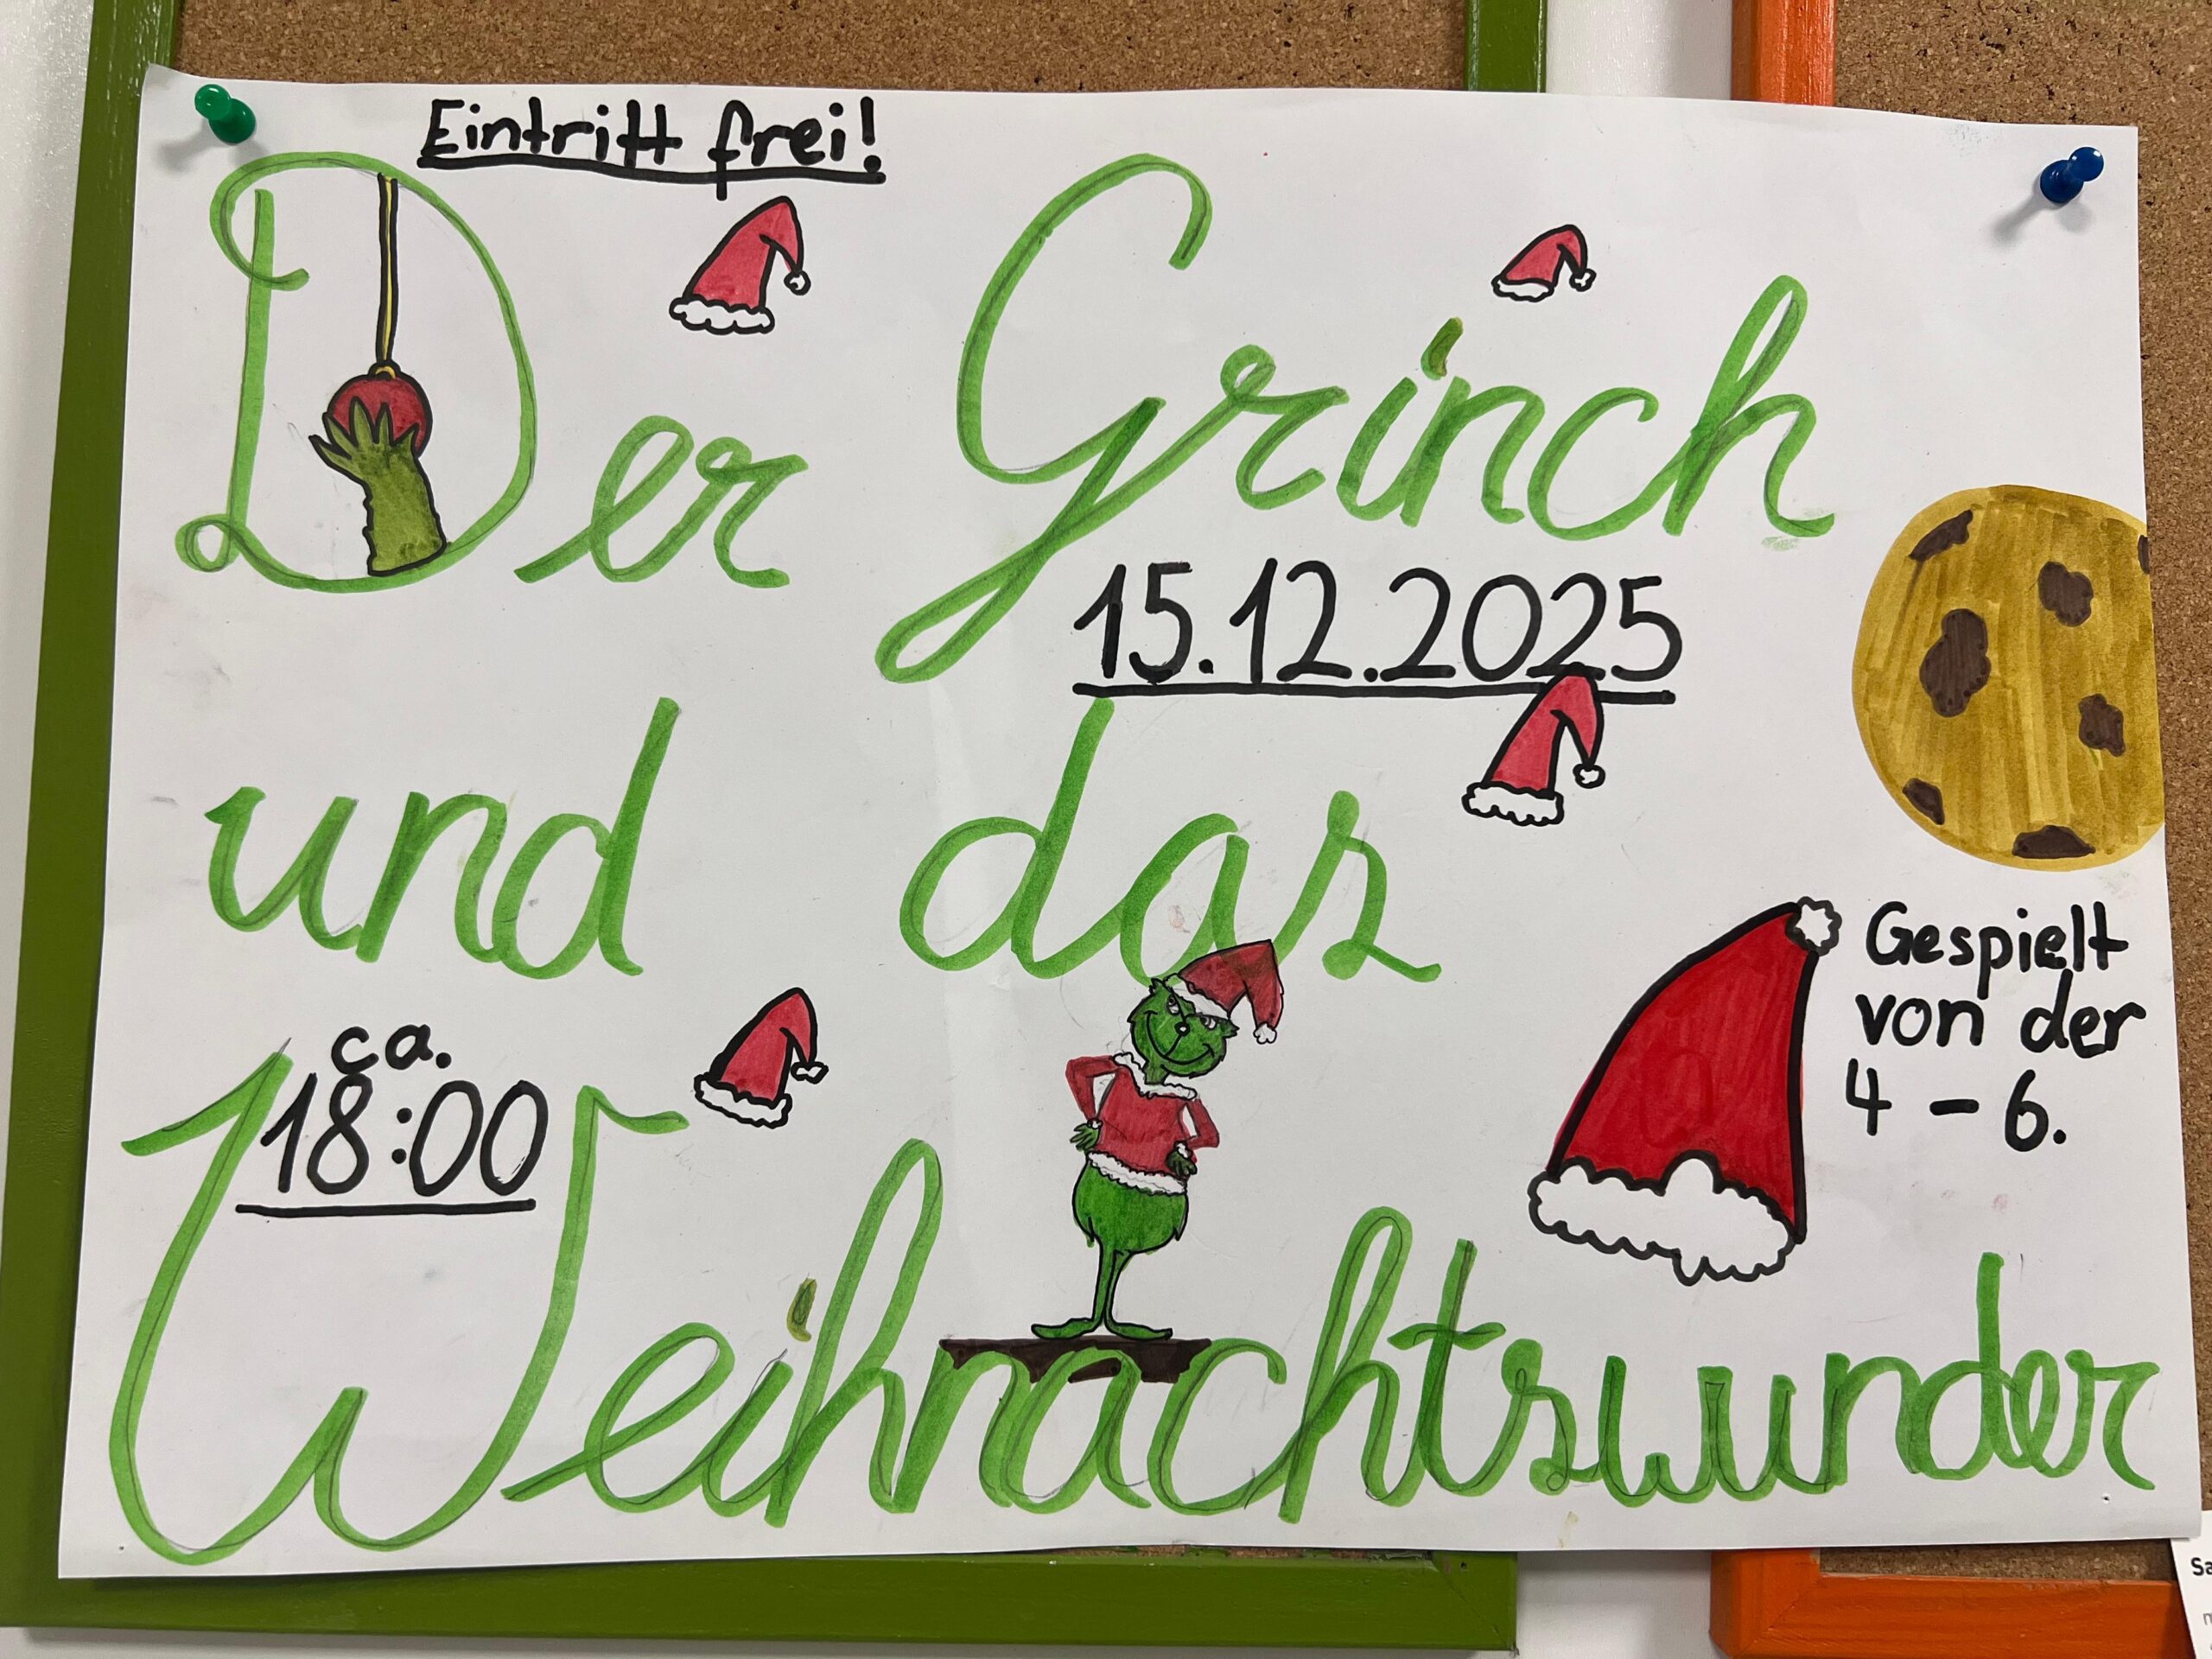 Eintritt frei!
Der Grinch
15.12.2025
und das
ca.
18:00
Weihnachtswunder
Gespielt
von der
4 – 6.